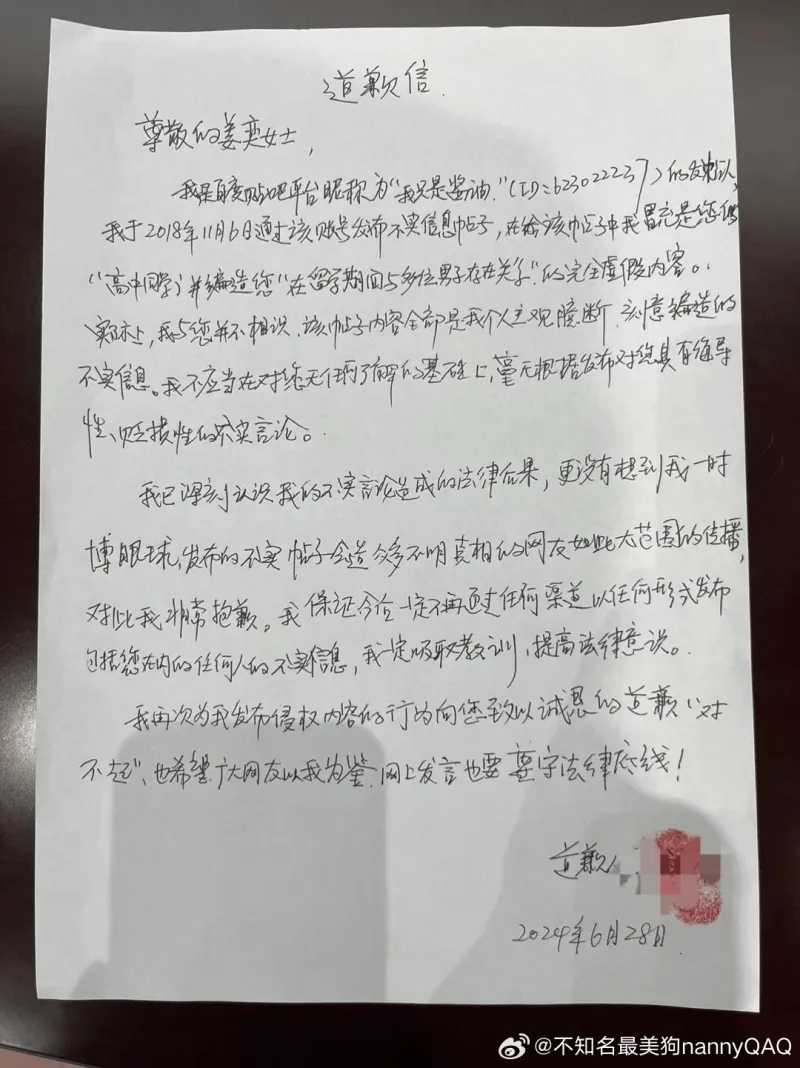 道歉信.
尊敬的姜奕女士，
我是百度贴吧平台昵称为“我只是酱油.”（ID=623022237）的发帖人，
我于2018年11月6日通过该账号发布不实信息帖子，在给该帖子中我冒充是您的
“高中同学”并编造您“在留学期间与多位男子存在关系”的完全虚假内容。
实际上，我与您并不相识，该帖子内容全部是我个人主观臆断、刻意编造的
不实信息。我不应当在对您无任何了解的基础上，毫无根据发布对您具有侮辱
性、贬损性的不实言论。
我已深刻认识我的不实言论造成的法律后果，更没有想到我一时
博眼球、发布的不实帖子会造众多不明真相的网友如此大范围的传播，
对此我非常抱歉。我保证今后一定不再通过任何渠道以任何形式发布
包括您在内的任何人的不实信息，我一定吸取教训，提高法律意识。
我再次为我发布侵权内容的行为向您致以诚恳的道歉“对
不起”，也希望广大网友以我为鉴，网上发言也要遵守法律底线！
道歉人
2024年6月28日
@不知名最美狗nannyQAQ